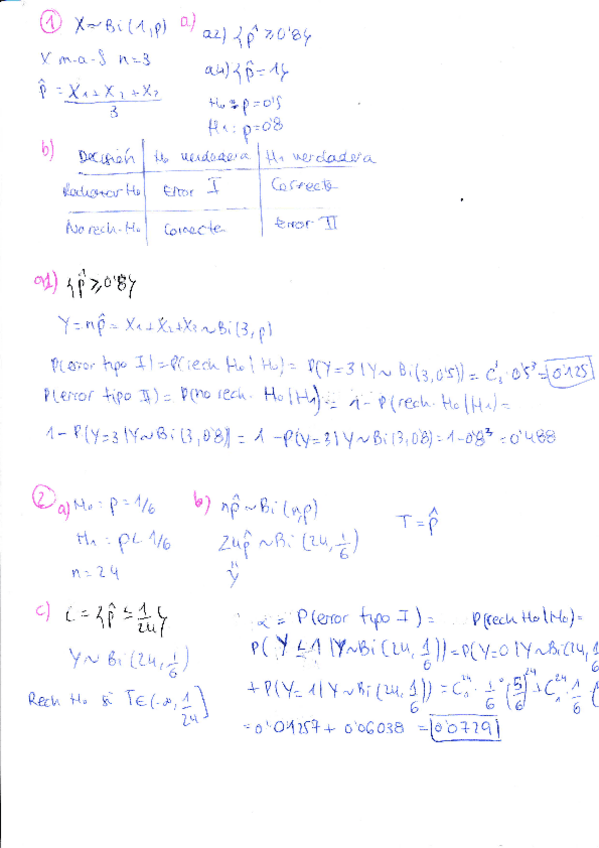 ① X~Bi(1,p) a) a2) {p̂ ≥ 0'8}
X m.a.s n=3 a4) {p̂ = 1}
p̂ = X₁+X₂+X₃ / 3 H₀: p=0'5
H₁: p=0'8
b) Decisión | H₀ verdadera | H₁ verdadera
Rechazar H₀ | Error I | Correcta
No rech. H₀ | Correcta | Error II
a1) {p̂ ≥ 0'8}
Y = np̂ = X₁+X₂+X₃ ~ Bi(3,p)
P(error tipo I) = P(rech H₀ | H₀) = P(Y=3 | Y~Bi(3,0'5)) = C₃³ · 0'5³ = 0'125
P(error tipo II) = P(no rech. H₀ | H₁) = 1 - P(rech. H₀ | H₁) =
1 - P(Y=3 | Y~Bi(3,0'8)) = 1 - P(Y=3 | Y~Bi(3,0'8)) = 1 - 0'8³ = 0'488
② a) H₀: p = 1/6 b) np̂ ~ Bi(n,p) T = p̂
H₁: p < 1/6 24p̂ ~ Bi(24, 1/6)
n = 24 Y
c) C = {p̂ ≤ 1/24} α = P(error tipo I) = P(rech H₀ | H₀) =
Y ~ Bi(24, 1/6) P(Y ≤ 1 | Y~Bi(24, 1/6)) = P(Y=0 | Y~Bi(24, 1/6
Rech H₀ si T∈(-∞, 1/24] + P(Y=1 | Y~Bi(24, 1/6)) = C₀²⁴ · 1/6⁰ (5/6)²⁴ + C₁²⁴ · 1/6 · (
= 0'01257 + 0'06038 = 0'0729